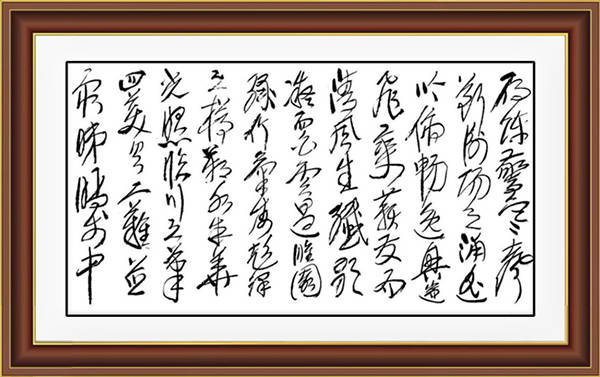 雁陣驚寒聲
斷衡陽之浦遥
吟俯暢逸興遄
飛爽籟發而
清風生纖歌
凝而白雲遏睢園
綠竹氣凌彭澤
之樽鄴水朱華
光照臨川之筆
四美具二難並
窮睇眄於中